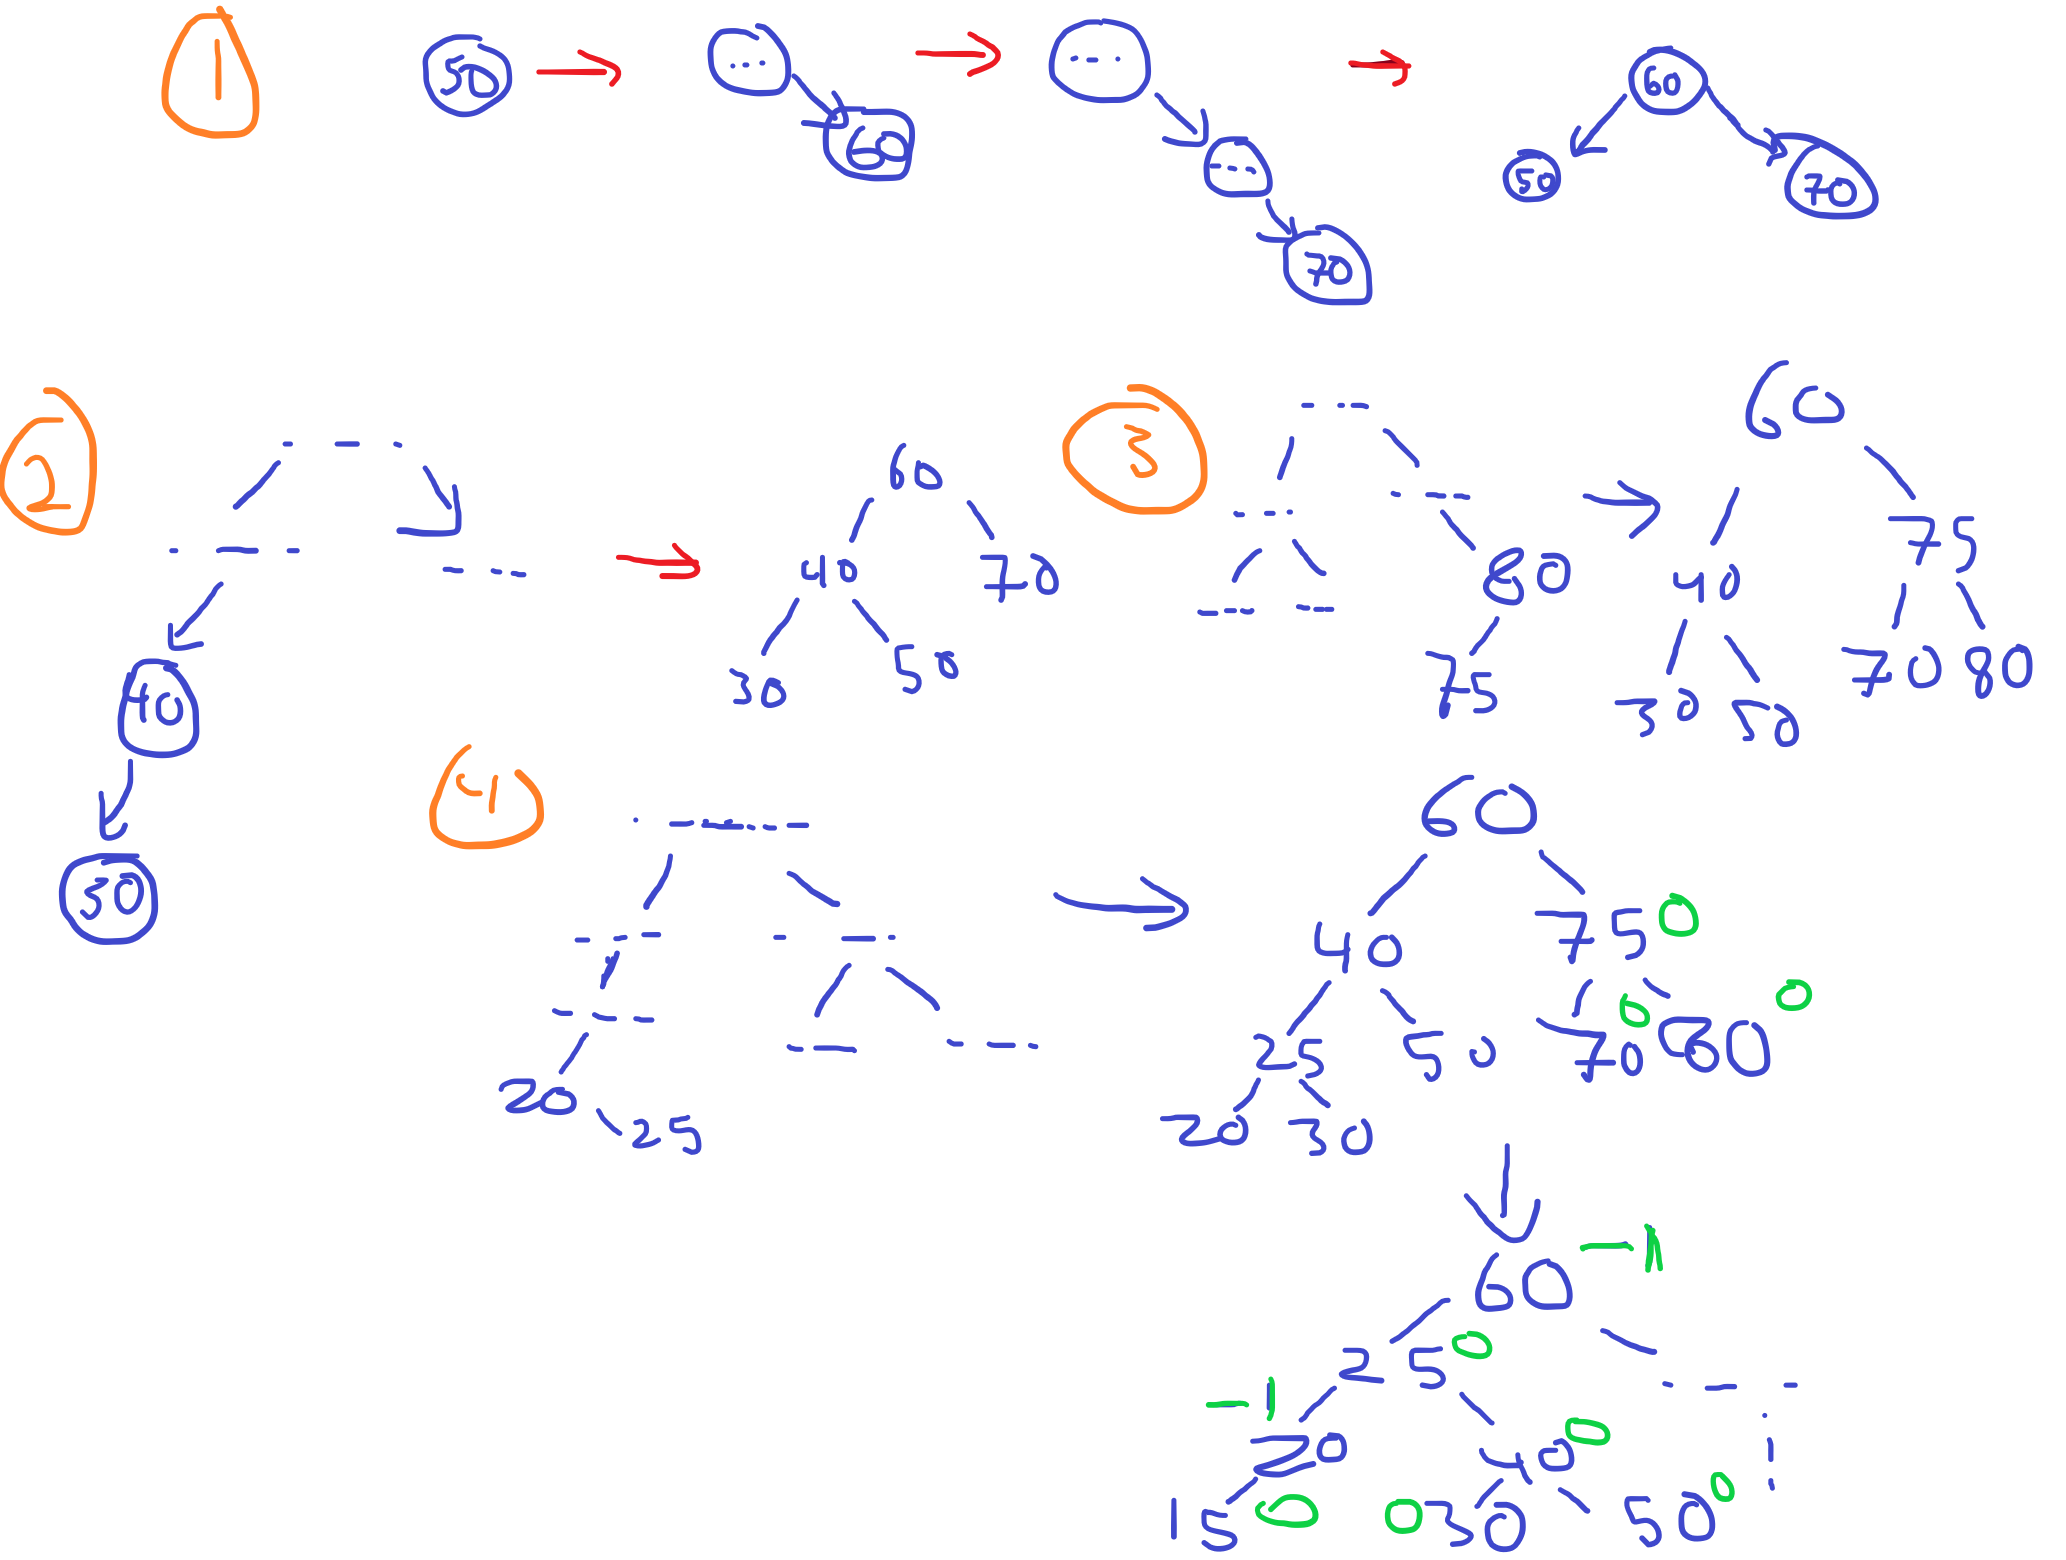 1
50
...
60
...
...
70
60
50
70
2
...
...
...
40
30
60
40
70
30
50
3
...
...
...
80
...
...
75
60
75
40
70
80
30
50
4
...
...
...
...
20
25
...
...
60
40
75
0
25
50
70
0
80
0
20
30
60
-1
25
0
...
-1
20
40
0
15
0
0
30
50
0